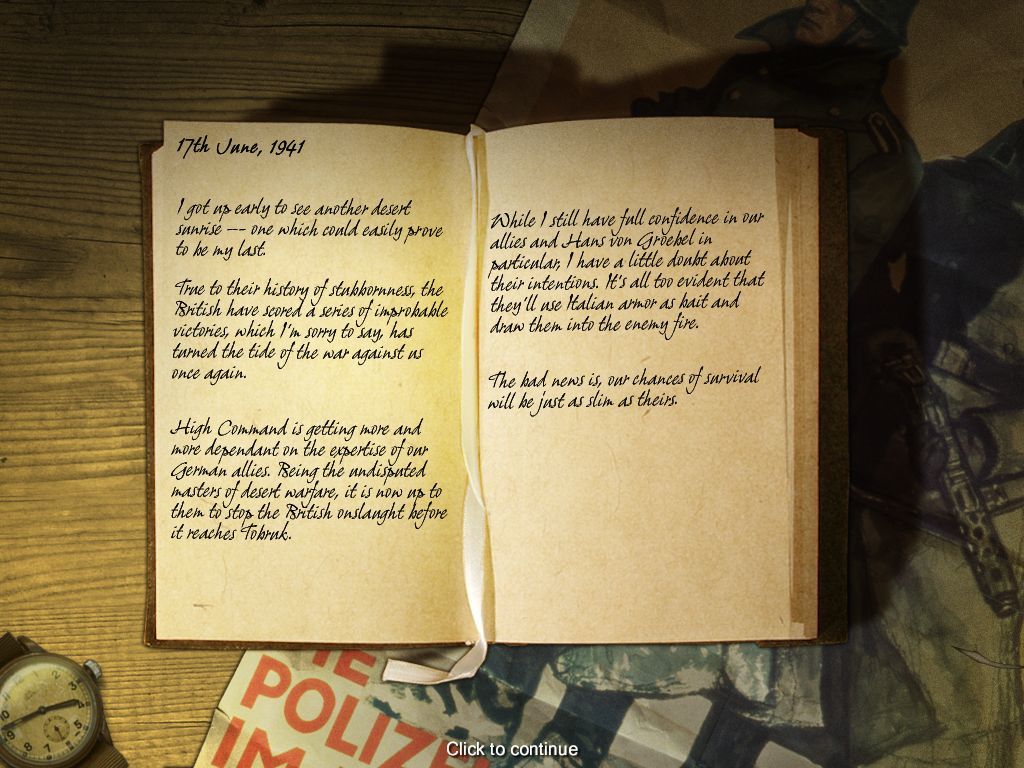 17th June, 1941
I got up early to see another desert
sunrise -- one which could easily prove
to be my last.
True to their history of stubbornness, the
British have scored a series of improbable
victories, which I'm sorry to say, has
turned the tide of the war against us
once again.
High Command is getting more and
more dependant on the expertise of our
German allies. Being the undisputed
masters of desert warfare, it is now up to
them to stop the British onslaught before
it reaches Tobruk.
While I still have full confidence in our
allies and Hans von Groebel in
particular, I have a little doubt about
their intentions. It's all too evident that
they'll use Italian armor as bait and
draw them into the enemy fire.
The bad news is, our chances of survival
will be just as slim as theirs.
POLIZ
IM
Click to continue